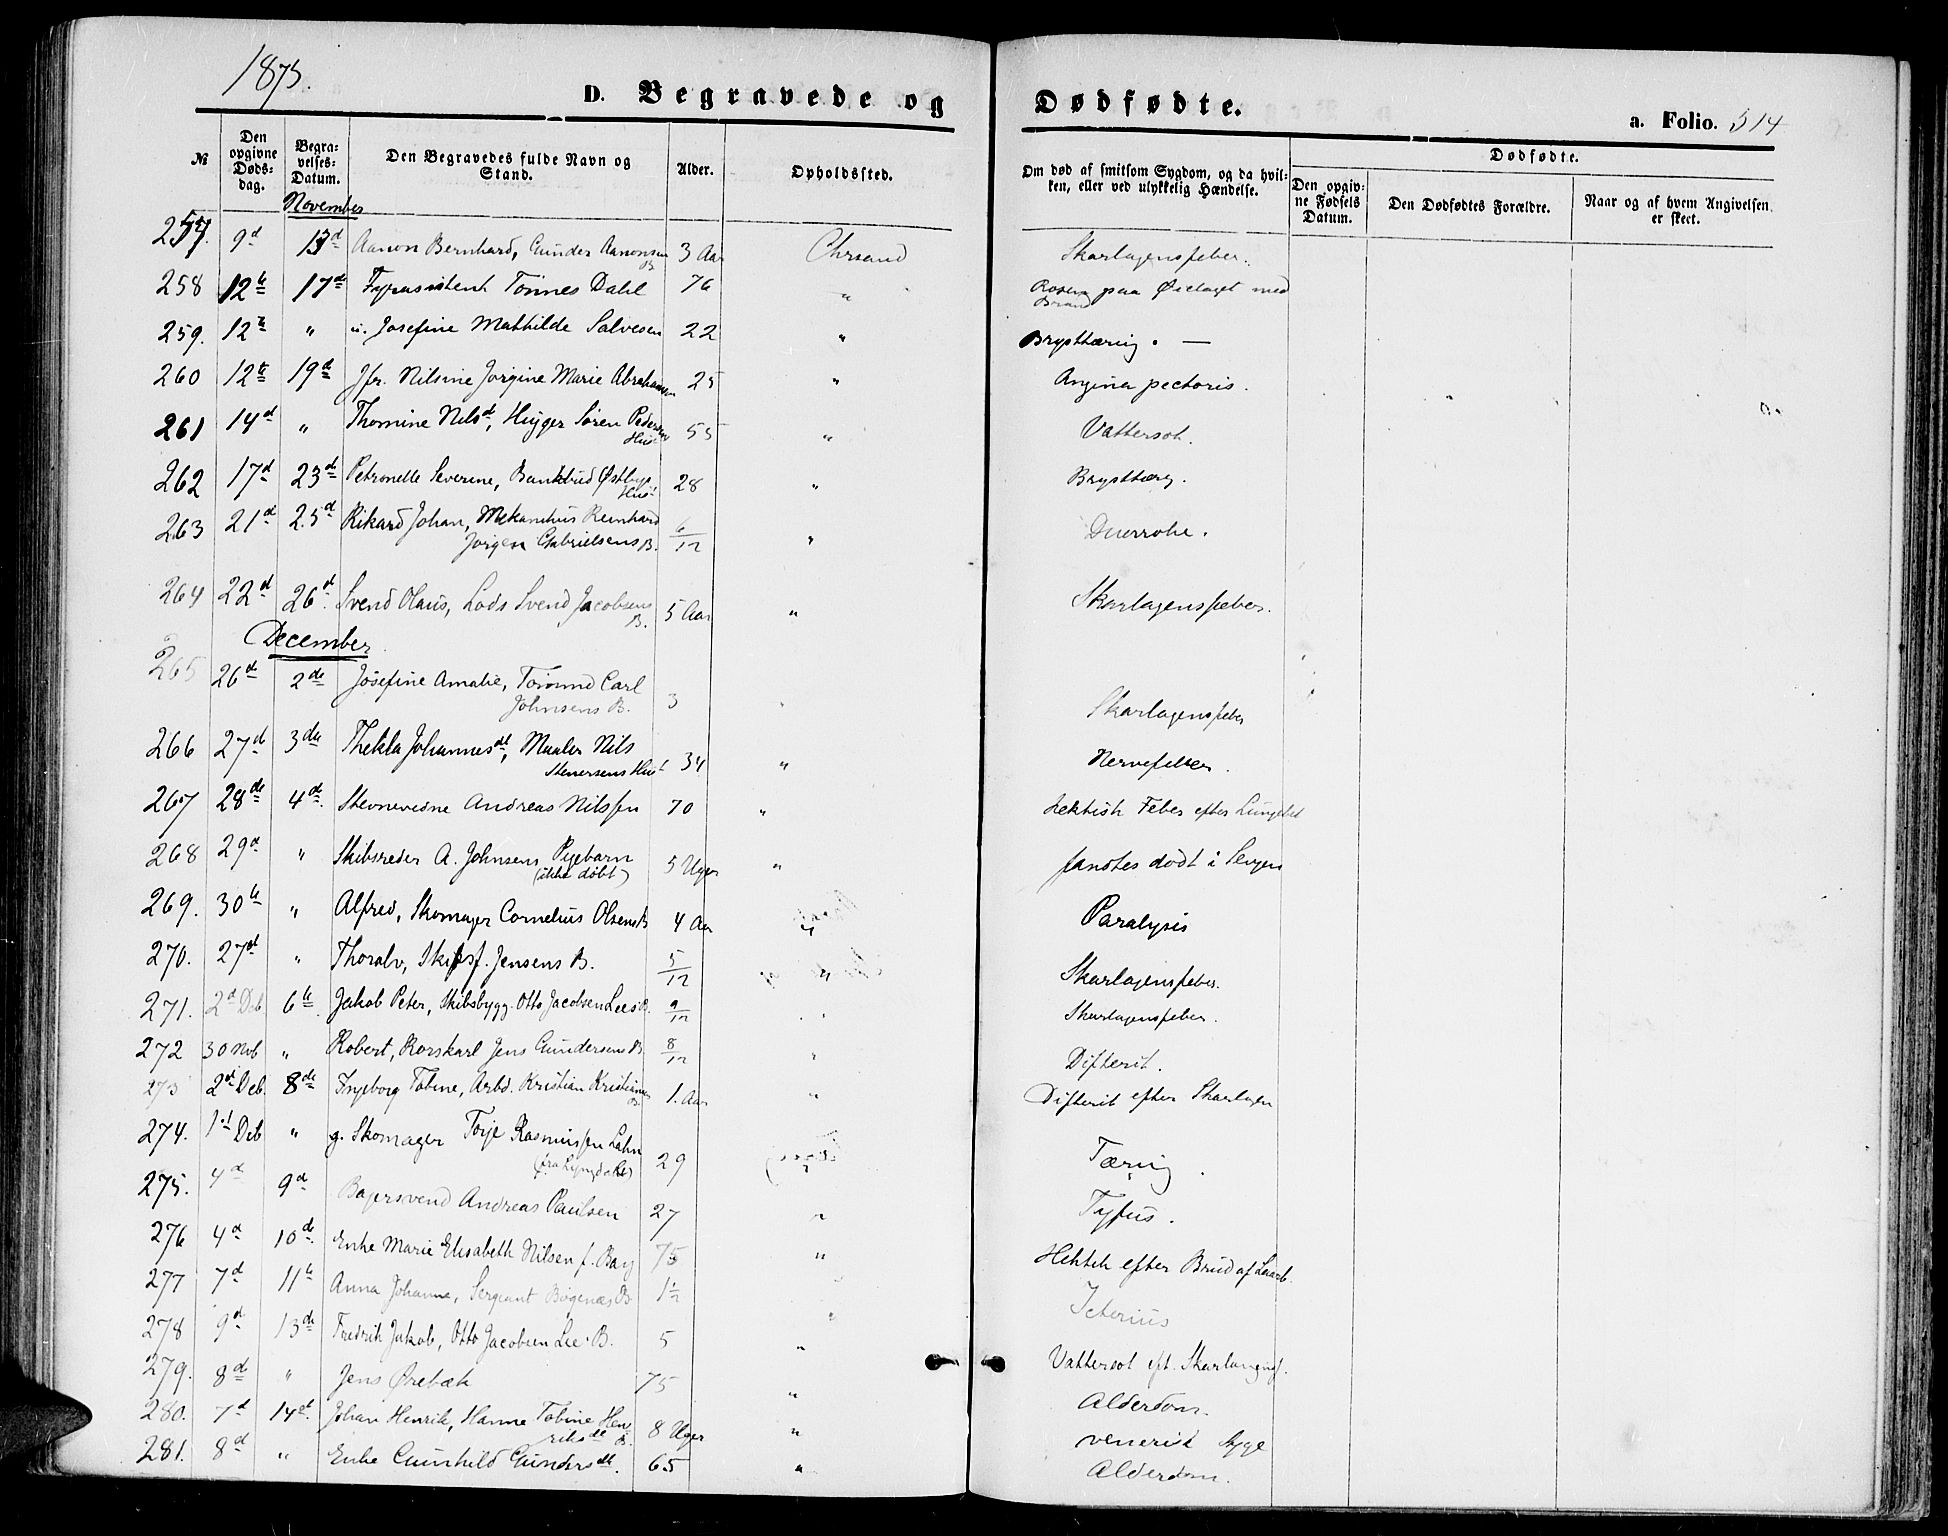 1875.
D. Begravede og Dødfødte.
a. Folio. 514
№
Den opgivne Døds-dag.
Begra-velses-Datum.
Den Begravedes fulde Navn og Stand.
Alder.
Opholdssted.
Om død af smitsom Sygdom, og da hvil-ken, eller ved ulykkelig Hændelse.
Dødfødte.
Den opgiv-ne Fødsels Datum.
Den Dødfødtes Forældre.
Naar og af hvem Angivelsen er skeet.
November
257. 9d 13d Aanon Bernhard, Gunder Aanonsen B. 3 Aar Chrsand Skarlagensfeber.
258 12te 17de Fyrassistent Tönnes Dahl 76 " Rosen paa Øielaget med Brand
259. 12te " u. Josefine Mathilde Salvesen 22 " Brysttæring. —
260 12te 19d Jfr. Nilsine Jorgine Marie Abrahamsen 25 " Angina pectoris.
261 14d " Thomine Nilsdt, Huger Sören Pedersens Hust 55 " Vattersot.
262 17d 23d Petronelle Severine, Bankbud Østbys Hust 28 " Brysttærg.
263 21d 25d Rikard Johan, Mekanikus Reinhard
Jörgen Gabrielsens B. 6/12 "
264 22d 26d Svend Olaus, Lods Svend Jacobsens B. 5 Aar " Skarlagensfeber.
December
265 26d 2de Josefine Amalie, Tömmd Carl
Johnsens B. 3 " Skarlagensfeber
266 27d 3die Thekla Johannesdt, Maaler Nils
Stenersens Hust 34 " Nervefeber.
267 28de 4de Stevnevidne Andreas Nilssen 70 " Hektisk Feber efter Lungebet
268 29d " Skibsreder A. Johnsens Pigebarn
(ikke döbt) 5 Uger " fandtes dödt i Sengen
269. 30te " Alfred, Skomager Cornelius Olsens B 4 Aar " Paralysis
270. 27d " Thoralv, Skipsf. Jensens B. 5/12 " Skarlagensfeber.
271. 2d Deb 6te Jakob Peter, Skibsbygg. Otto Jacobsen Lees B. 9/12 " Skarlagensfeber.
272 30 Nvb " Robert, Rorskarl Jens Gundersens B. 8/12 " Difterit.
273 2d Deb. 8de Ingeborg Tobine, Arbd. Kristian Kristiansens B. 1. Aar " Difterit efter Skarlagen
274. 1st Deb " g. Skomager Torje Rasmussen Lahn
(fra Lyngdahl) 29 " Tæring.
275. 4d 9d Bagersvend Andreas Paulsen 27 " Tyfus.
276 4d 10de Enke Marie Elisabeth Nilsen f. Bay 75 " Hektik efter Brud af Laarb.
277 7d 11te Anna Johanne, Sergeant Bögenæs B 1½ " Icterius
278 9d 13de Fredrik Jakob, Otto Jacobsen Lee B. 5 " Vattersot eft. Skarlangensf.
279. 8de " Jens Ørebæk 75 " Alderdom.
280. 7d 14d. Johan Henrik, Hanne Tobine Hen
riksdt B. 8 Uger " venerisk Syge
281. 8d " Enke Gunhild Gundersdt. 65 " Alderdom.